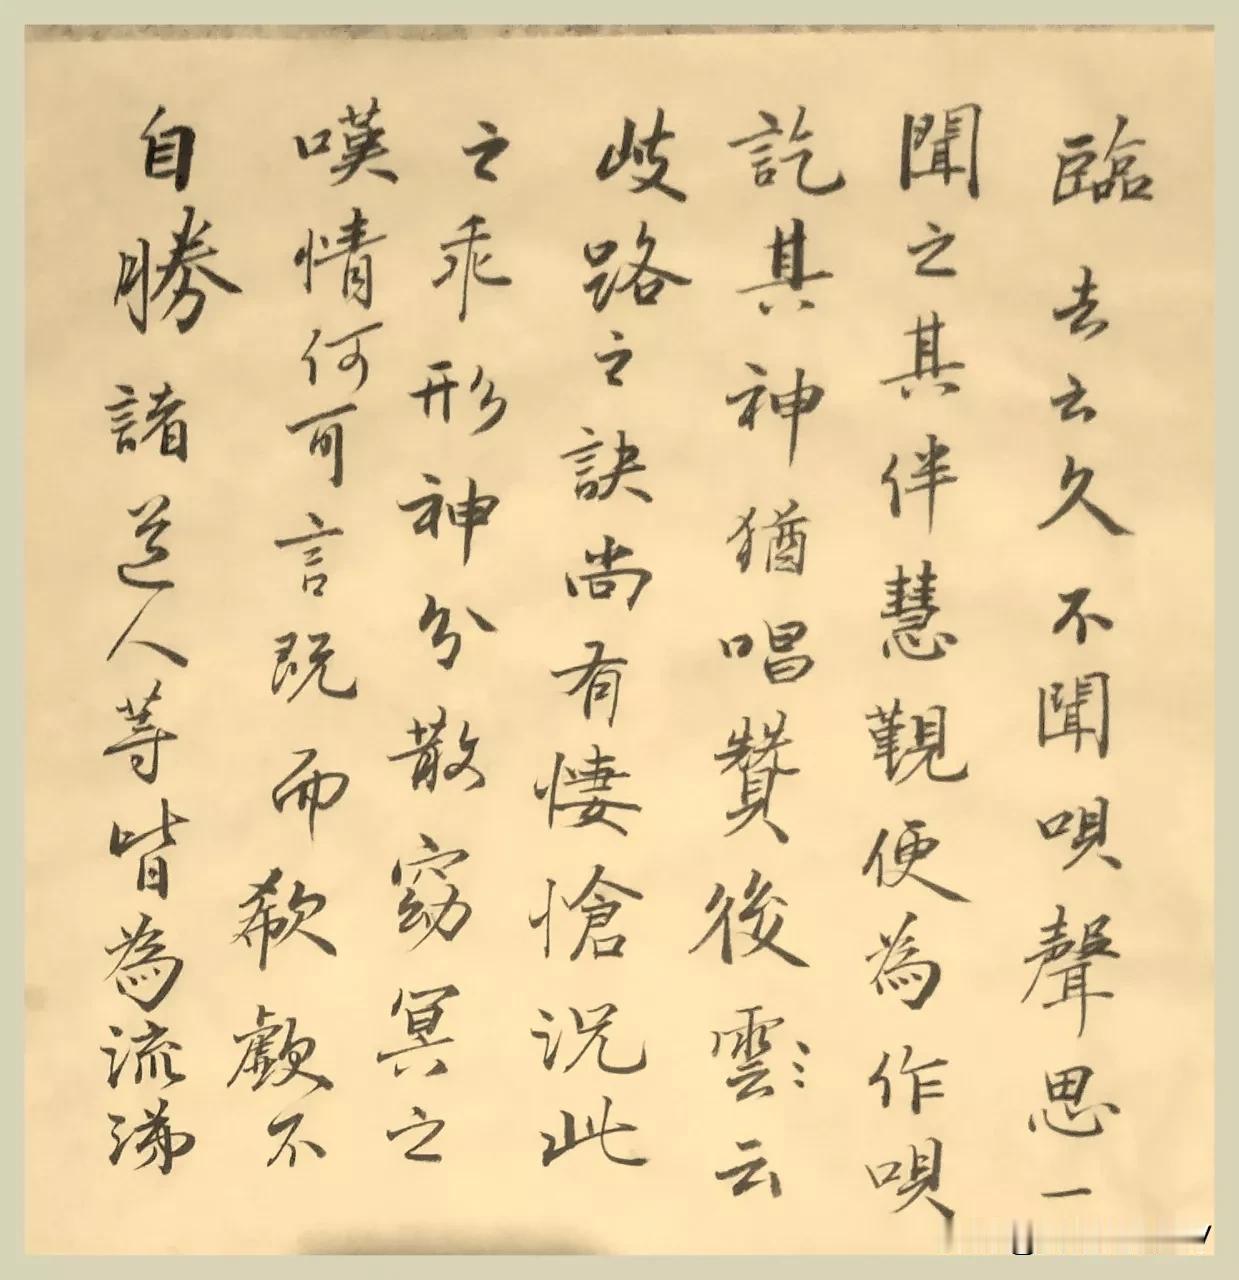 臨去云久不聞唄聲思一
聞之其伴慧觀便為作唄
訖其神猶唱贊後雲云
岐路之訣尚有悽愴況此
之乖形神分散窈冥之
嘆情何可言既而欷歔不
自勝諸道人等皆為流涕